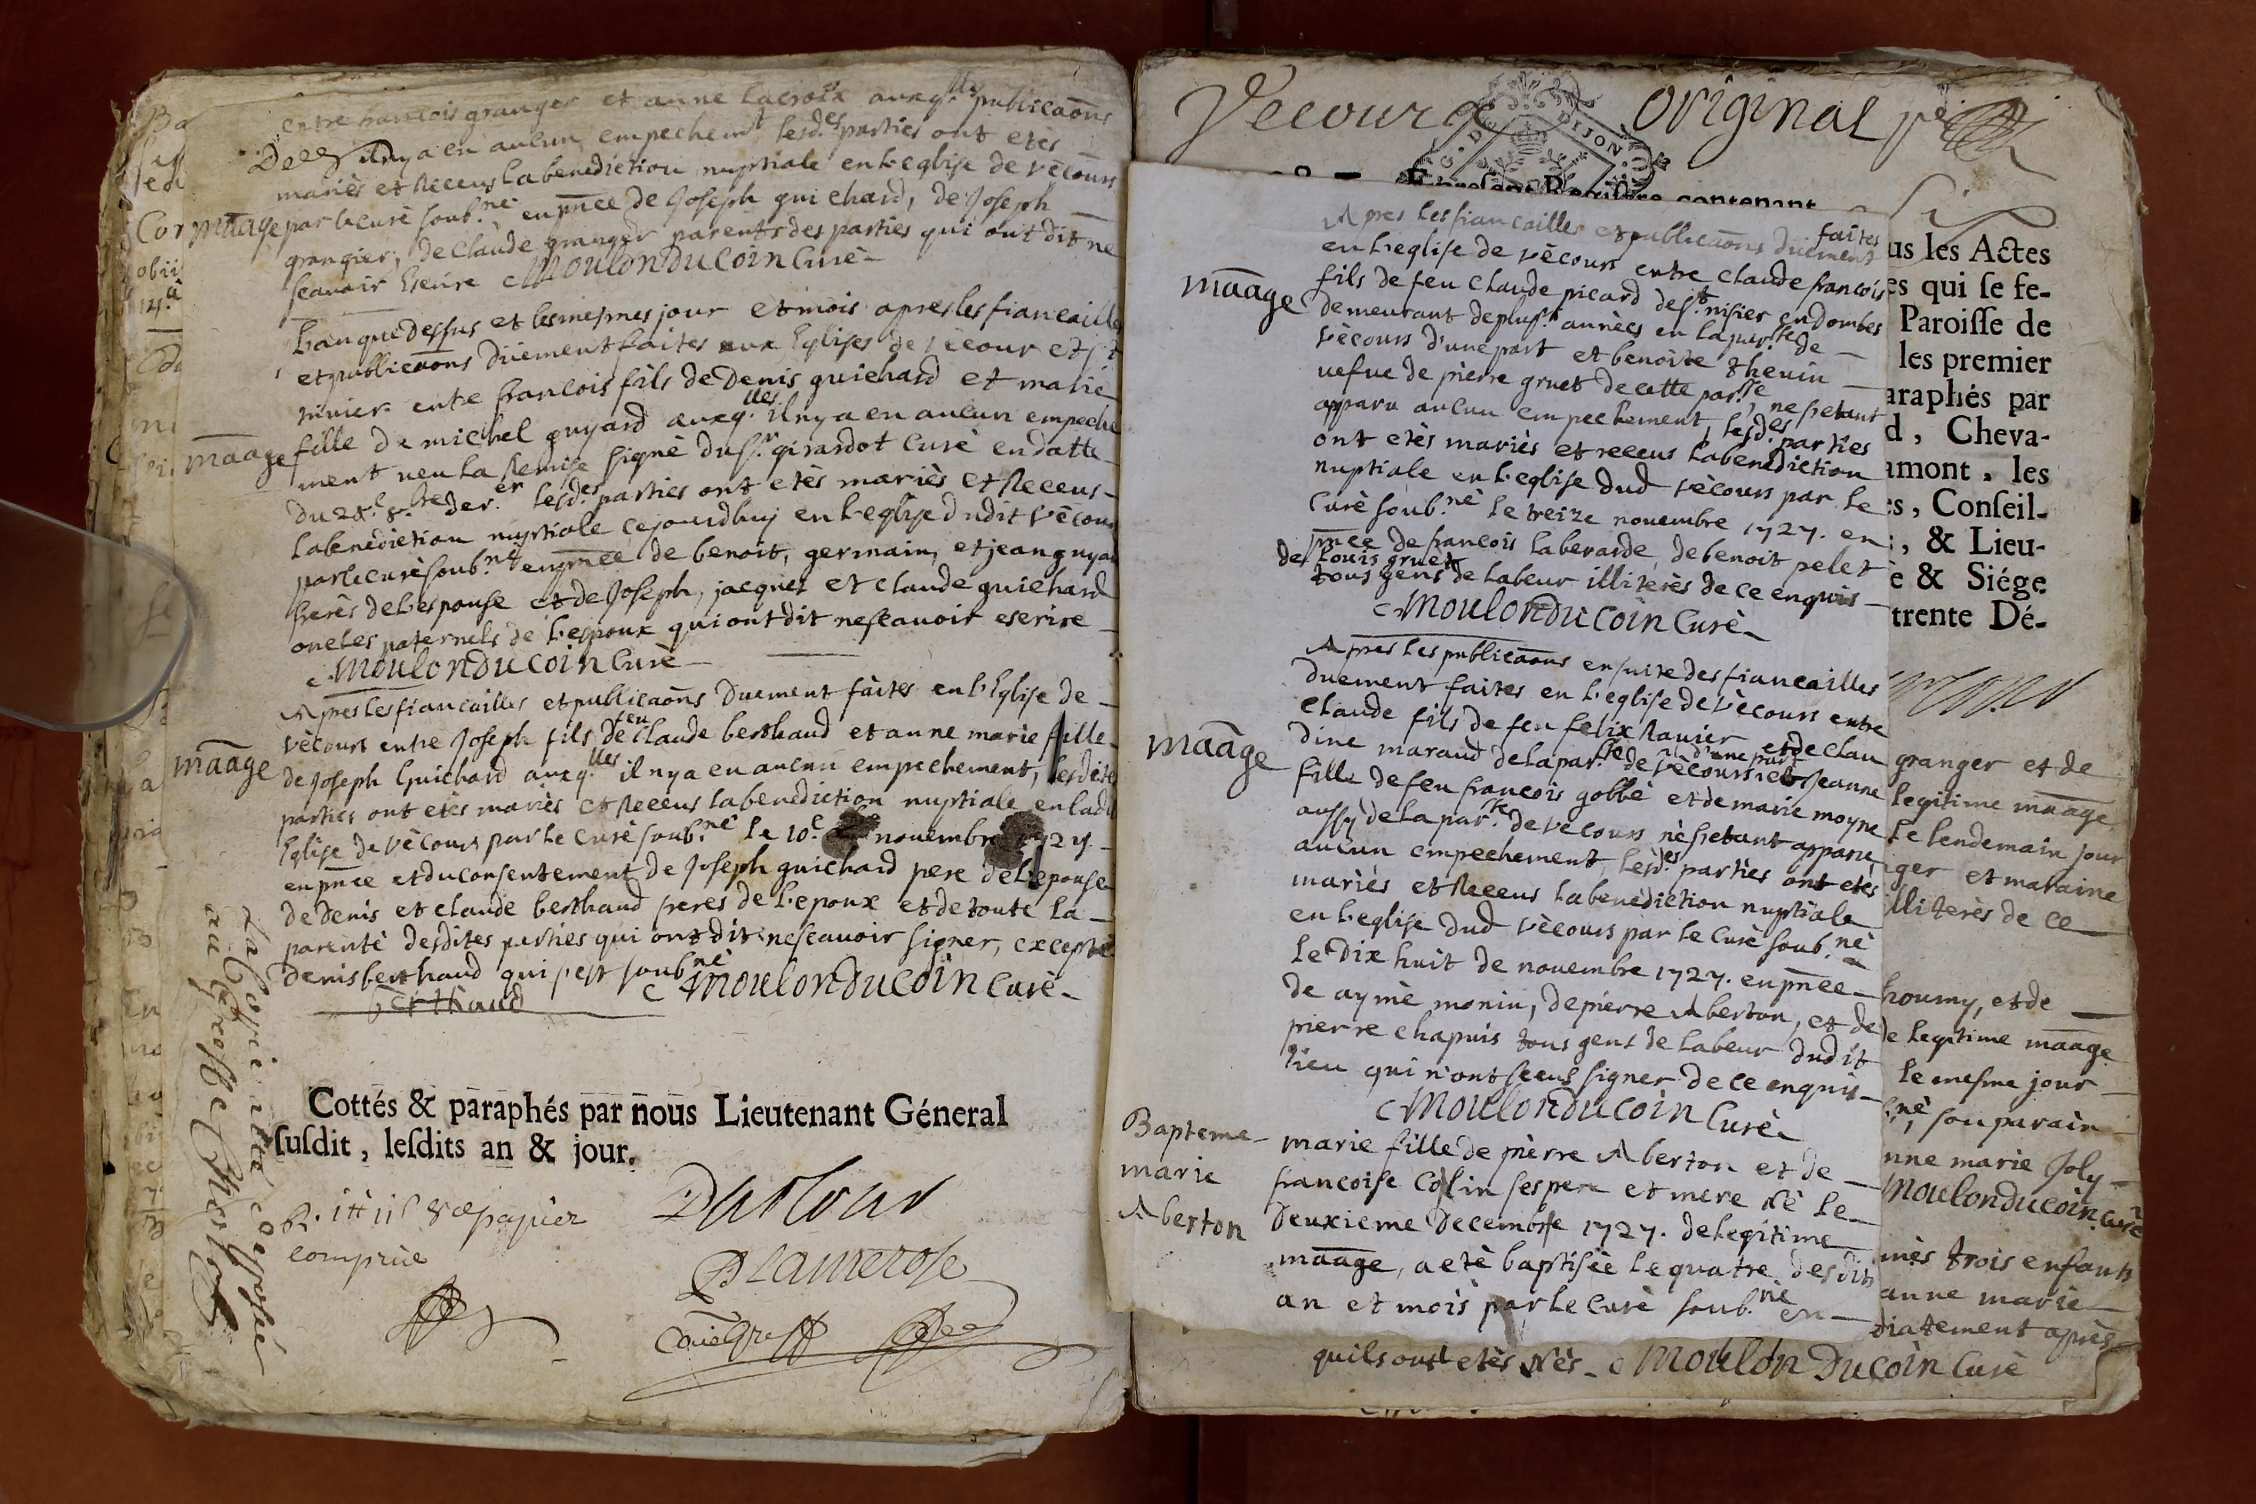 entre francois granger et anne Lacroix auxq.lls publicaons
il ny a eu aucun empechemt lesd.es parties ont etés
mariés et Receus la benediction nuptiale en l'eglise de vècours
maage par le curé soub.né en pnce de Joseph guichard, de Joseph
grangier, de claude granger parents des parties qui ont dit ne
scavoir Escrire Moulonducoin Curé
L'an que Dessus et les mesmes jour et mois apres les fiancailles
et publicaons düement faites aux Eglises de vècour et st
nivier entre francois fils de Denis guichard et marie
maage fille de michel guyard auxq.lles il ny a eu aucun empeche
ment veu la Remise signè du sr. girardot Curè en datte
du 28.e 8.bre der.er lesd.es parties ont etès mariès et Receus
la benèdiction nuptiale cejourdhuy en l'eglise dudit vècour
par le curé soub.né en pnce de benoit, germain, et jean guyard
freres de l'espouse et de Joseph, jacques et claude guichard
oncles paternels de l'espoux qui ont dit ne scavoir escrire
Moulonducoin Curé
Apres les fiancailles et publicaons duement faites en l'Eglise de
vècours entre Joseph fils de feu claude berthaud et anne marie fille
maage de Joseph Guichard auxq.lles il ny a eu aucun empechement, lesdites
parties ont etès mariès et Receus la benediction nuptiale en ladte
Eglise de vècours par le Curé soub.né le 10e novembre 1727
en pnce et du consentement de Joseph guichard pere de L'epouse
de Denis et claude berthaud freres de l'epoux et de toute la
parentè desdites parties qui ont dit ne scavoir signer, excepté
Denis berthaud qui s'est soub.né Moulonducoin Curé
berthaud
Cottés & paraphés par nous Lieutenant Géneral
susdit, lesdits an & jour.
comprise
La Copie a ete deposée
au Greffe
Vecours Original
G. D. DIJON
present Registre contenant
us les Actes
es qui se fe-
Paroisse de
les premier
araphés par
d, Cheva-
amont, les
es, Conseil-
, & Lieu-
e & Siége
trente Dé-
Apres les fiancailles et publicaons düement faites
en l'eglise de vècours entre claude francois
maage fils de feu claude picard de st. nisier en dombes
demeurant de plus.rs années en la par.sse de
vècours d'une part et benoite thevin
vefve de pierre gruet de cette par.sse, ne s'etant
apparu aucun empechement, lesd.es parties
ont etès mariès et receus la benediction
nuptiale en l'eglise dud vècours par le
Curé soub.né le treize novembre 1727. en
pnce de francois laberarde, de benoit pelet
de Louis gruet
tous gens de labeur illiterès de ce enquis
Moulonducoin Curé
Apres les publicaons en suite des fiancailles
duement faites en l'eglise de vècours entre
claude fils de feu felix Ravier et de clau
maage dine maraud de la par.sse de vècours d'une part et Jeanne
fille de feu francois gobbé et de marie moyne
aussy de la par.sse de vècours nè s'etant apparu
aucun empechement, lesd.es parties ont etès
mariès et Receus la benediction nuptiale
en l'eglise dud vècours par le Curé soub.né
le Dix huit de novembre 1727. en pnce
de aymè monin, de pierre Aberton, et de
pierre chapuis tous gens de labeur dudit
lieu qui n'ont sceus signer de ce enquis
Moulonducoin Curé
Bapteme marie fille de pièrre Aberton et de
marie francoise Colin ses pere et mere Nè le
Aberton Deuxieme Decembre 1727. de legitime
maage, a etè baptisèe le quatre desdits
an et mois par le Curé soub.né en
granger et de
legitime maage
le lendemain jour
ger et maraine
illiterès de ce
houmy, et de
de legitime maage
le mesme jour
né, son parain
nne marie Joly
Moulonducoin Curé
més trois enfants
anne marie
diatement après
quils ont etès Nès Moulon Ducoin Curé